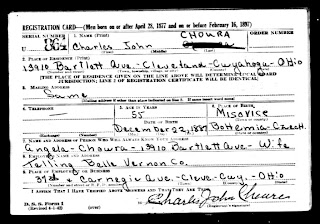 REGISTRATION CARD—(Men born on or after April 28, 1877 and on or before February 16, 1897)
SERIAL NUMBER 1. NAME (Print) CHOURA ORDER NUMBER
U Charles John
(First) (Middle) (Last)
2. PLACE OF RESIDENCE (Print)
13910 Bartlett Ave.-Cleveland-Cuyahoga-Ohio
(Number and street) (Town, township, village, or city) (County) (State)
[THE PLACE OF RESIDENCE GIVEN ON THE LINE ABOVE WILL DETERMINE LOCAL BOARD
JURISDICTION; LINE 2 OF REGISTRATION CERTIFICATE WILL BE IDENTICAL]
3. MAILING ADDRESS
Same
[Mailing address if other than place indicated on line 2. If same insert word same]
4. TELEPHONE 5. AGE IN YEARS 6. PLACE OF BIRTH
55 Misovice
DATE OF BIRTH (Town or county)
December 22, 1887 Bohemia-Czech.
(Exchange) (Number) (Mo.) (Day) (Yr.) (State or country)
7. NAME AND ADDRESS OF PERSON WHO WILL ALWAYS KNOW YOUR ADDRESS
Angela-Choura-13910 Bartlett Ave-Wife
8. EMPLOYER'S NAME AND ADDRESS
Telling Belle Vernon Co.
9. PLACE OF EMPLOYMENT OR BUSINESS
Carnegie Ave.-Cleve-Cuy.-Ohio
(Number and street or R. F. D. number) (Town) (County) (State)
I AFFIRM THAT I HAVE VERIFIED ABOVE ANSWERS AND THAT THEY ARE TRUE.
D. S. S. Form 1
(Revised 4-1-42) (over) Charles John Choura